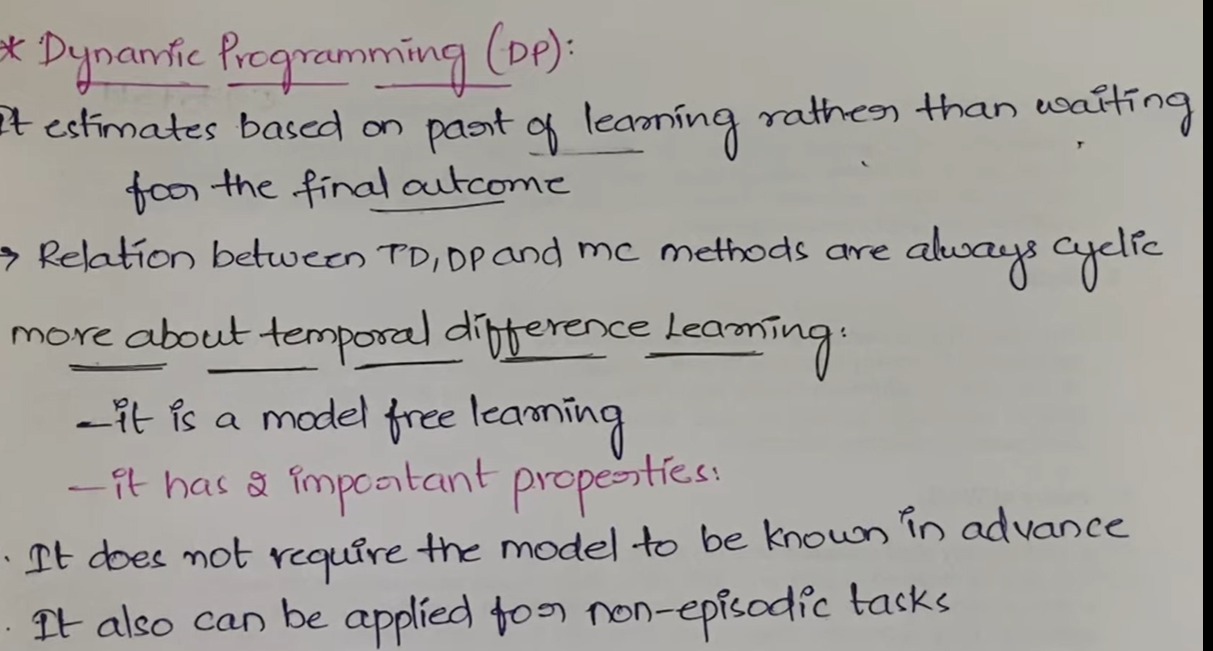 * Dynamic Programming (DP):
It estimates based on part of learning rather than waiting
for the final outcome
→ Relation between TD, DP and MC methods are always cyclic
more about temporal difference Learning:
- it is a model free learning
- it has 2 important properties:
. It does not require the model to be known in advance
. It also can be applied for non-episodic tasks